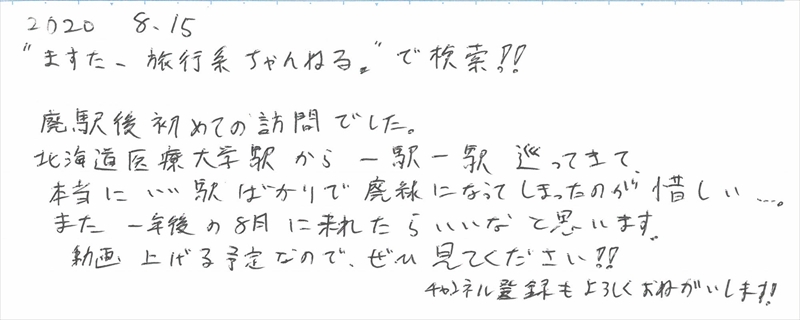 2020 8.15
"ますたー旅行系ちゃんねる。"で検索!!
廃駅後初めての訪問でした。
北海道医療大学駅から一駅一駅巡ってきて、
本当にいい駅ばかりで廃線になってしまったのが惜しい…。
また一年後の8月に来れたらいいなと思います。
動画上げる予定なので、ぜひ見てください!!
チャンネル登録もよろしくおねがいします!